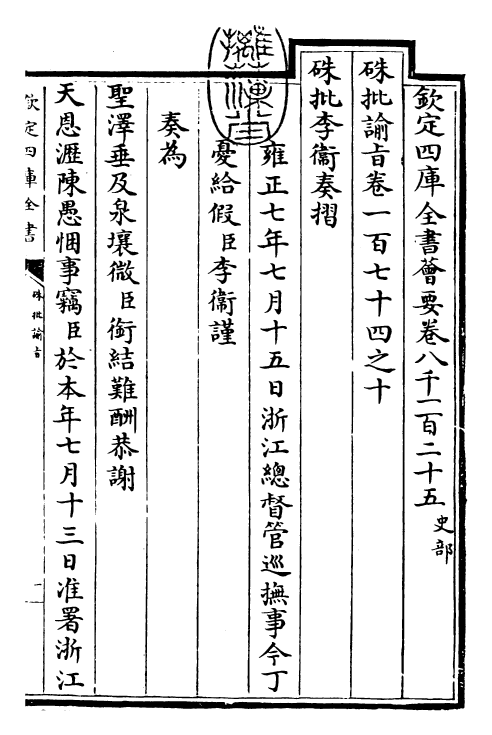 欽定四庫全書薈要卷八千一百二十五史部
硃批諭旨卷一百七十四之十
硃批李衞奏摺
雍正七年七月十五日浙江總督管巡撫事今丁
憂給假臣李衞謹
奏為
聖澤垂及泉壤微臣銜結難酬恭謝
天恩瀝陳愚悃事竊臣於本年七月十三日准署浙江
欽定四庫全書
硃批諭旨
一